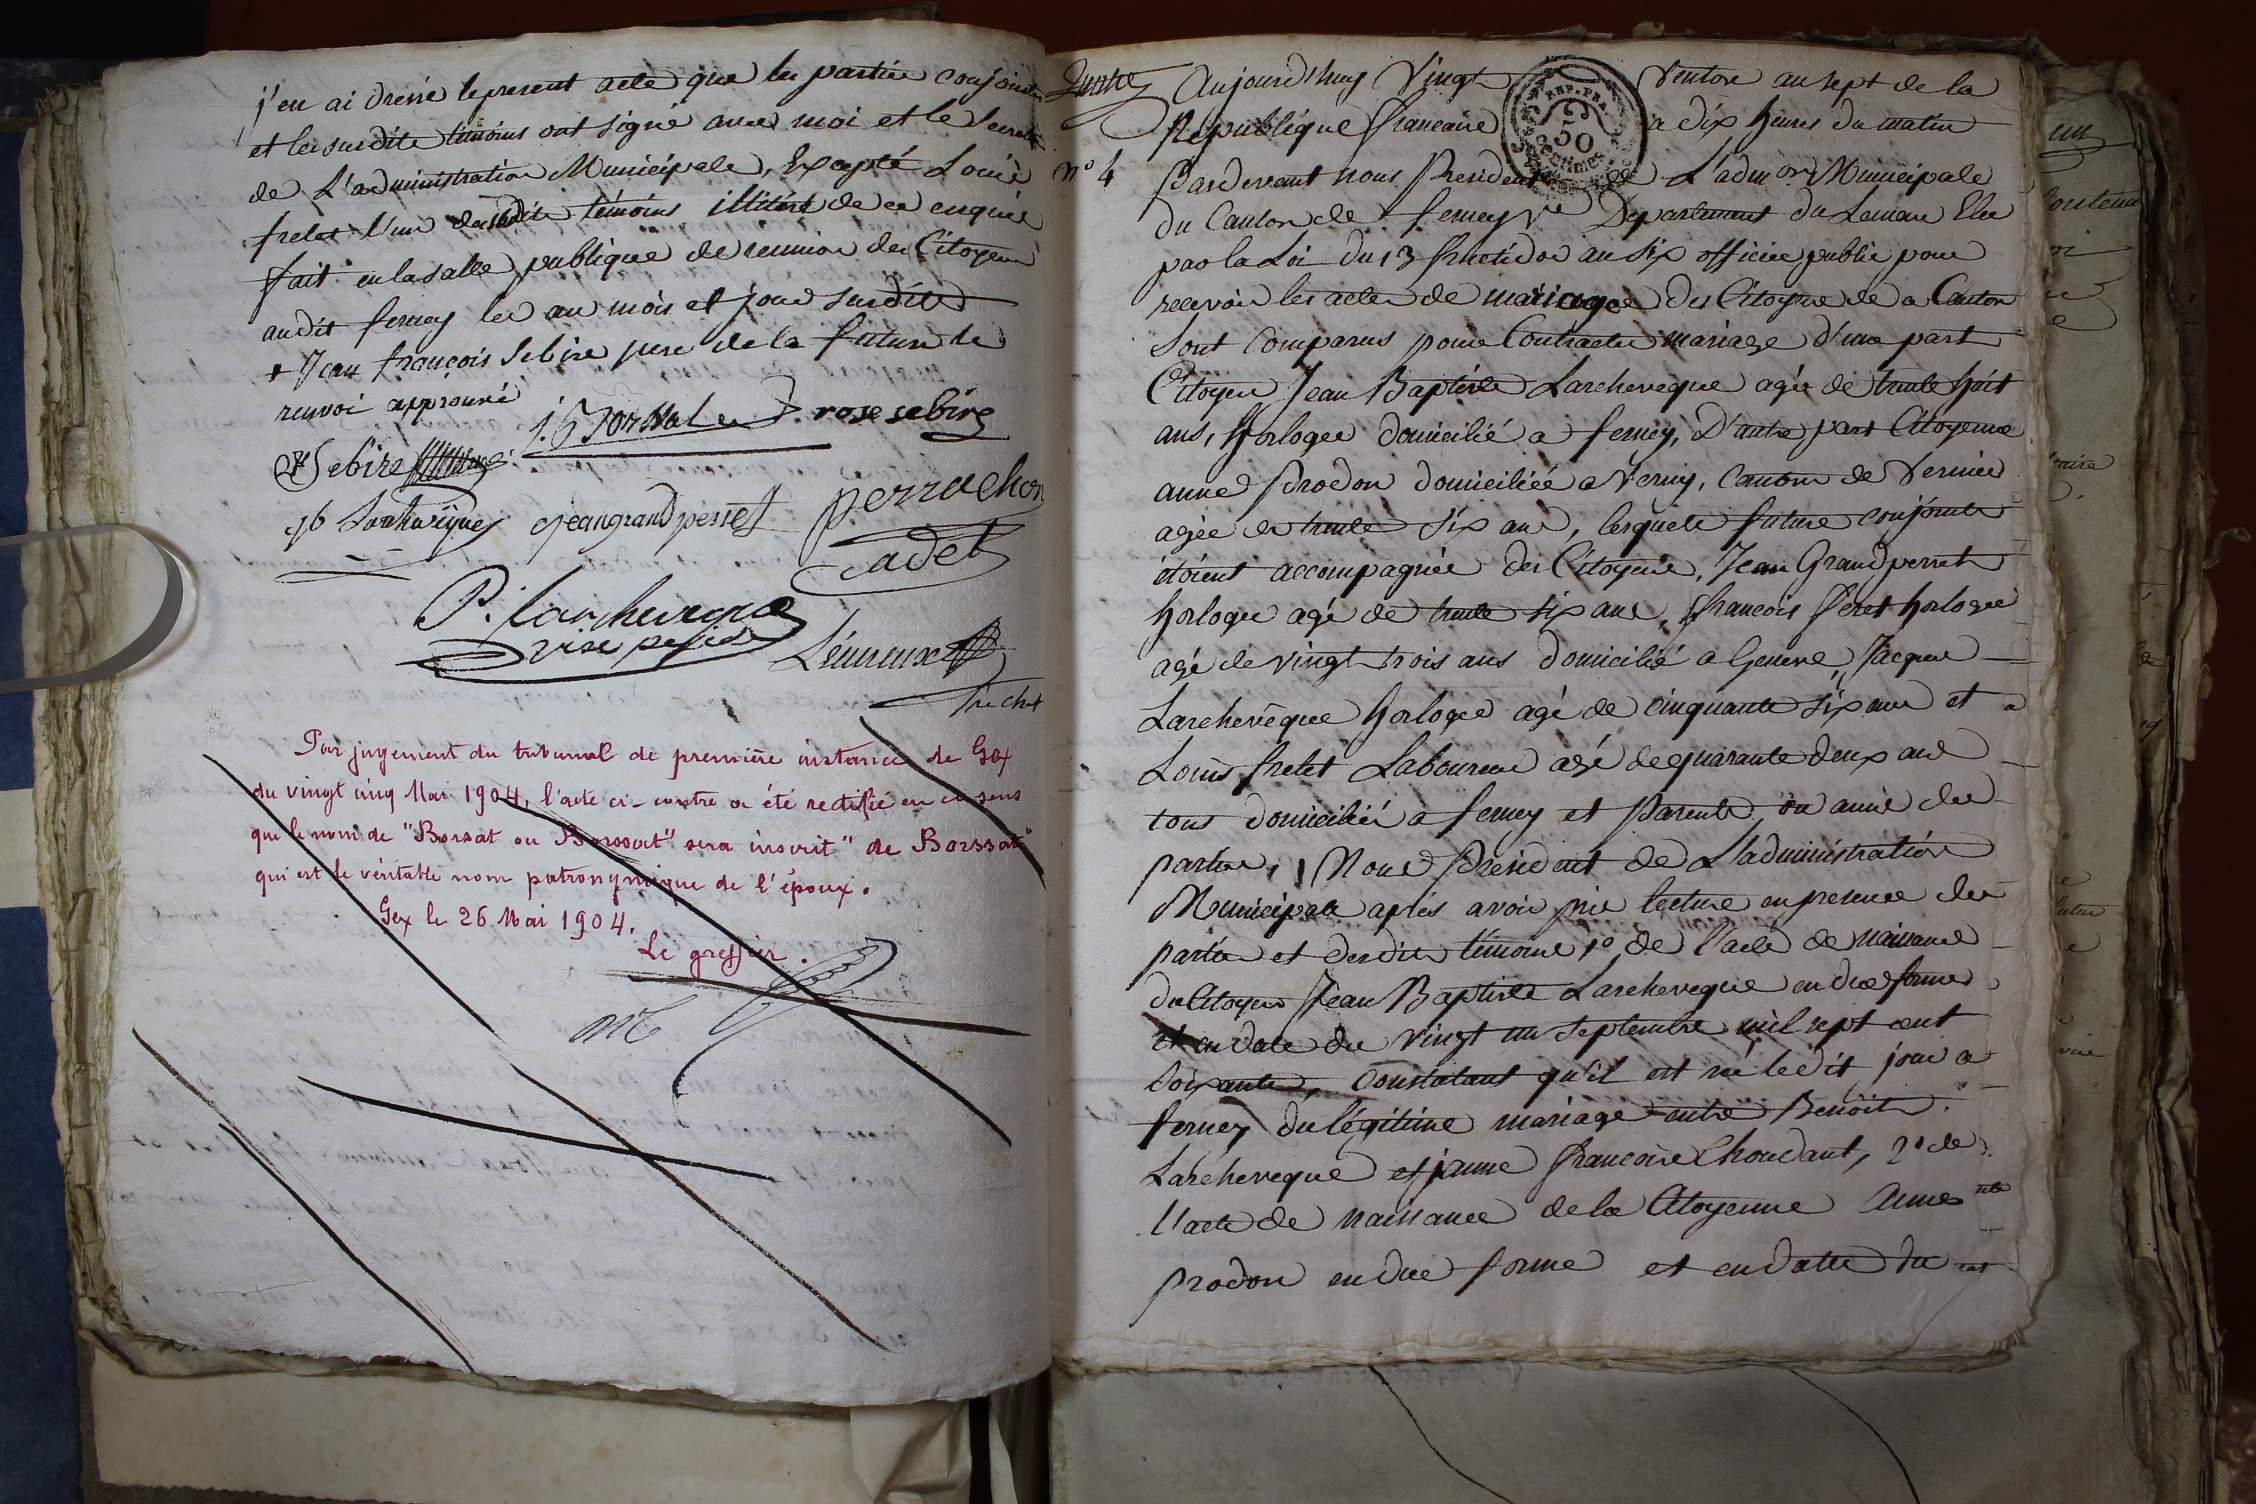 j'en ai dressé le present acte que les parties conjointes
et les susdits témoins ont signé avec moi et le Secret.
de L'administration Municipale, Excepté Louis
fretet l'un desdits témoins illitéré de ce enquis
fait en la salle publique de reunion des Citoyens
audit ferney les an mois et jour susdits
+ Jean françois Sebire pere de la future le
renvoi approuvé
rose sebire
Sebire
jb Larchevêque jean grand perret perrachon
cadet
P. Larcheveque
vise presid
L'éureux
Par jugement du tribunal de première instance de Gex
du vingt cinq Mai 1904, l'acte ci-contre a été rectifié en ce sens
que le nom de "Borssat ou Borssat" sera inscrit "de Borssat"
qui est le véritable nom patronymique de l'époux.
Gex le 26 Mai 1904.
Le greffier.
Aujourd'huy Vingt Ventose an sept de la
REP. FRA.
50
centimes
République francaise a dix heures du matin
n° 4
Pardevant nous President de L'admon Municipale
du Canton de ferney Vre Departement du Leman Elu
par la Loi du 13 fructidor an six officier public pour
recevoir les actes de mariages des Citoyens de ce Canton
Sont Comparus pour Contracter mariage d'une part
Citoyen Jean Baptiste Larcheveque agé de trente huit
ans, horloger domicilié a ferney, D'autre part Citoyenne
anne Prodon domiciliée a Verny, Canton de Vernier
agée de trente six ans, lesquels futurs conjoints
étoient accompagnés des Citoyens, Jean Grandperret
horloger agé de trente six ans, francois feret horloger
agé de vingt trois ans domicilié a Geneve, Jacques
Larchevêque horloger agé de cinquante six ans et
Louis fretet Laboureur agé de quarante deux ans
tous domiciliés a ferney et Parents ou amis des
parties, Nous President de L'administration
Municipale après avoir pris lecture en presence des
parties et desdits témoins 1° de l'acte de naissance
du Citoyen Jean Baptiste Larcheveque en due forme
et en date du vingt un septembre mil sept cent
soixante, Constatant qu'il est né ledit jour a
ferney du légitime mariage entre Benoit
Larcheveque et jeanne francoise Choudant, 2° de
l'acte de naissance de la Citoyenne Anne
prodon en due forme et en datte du